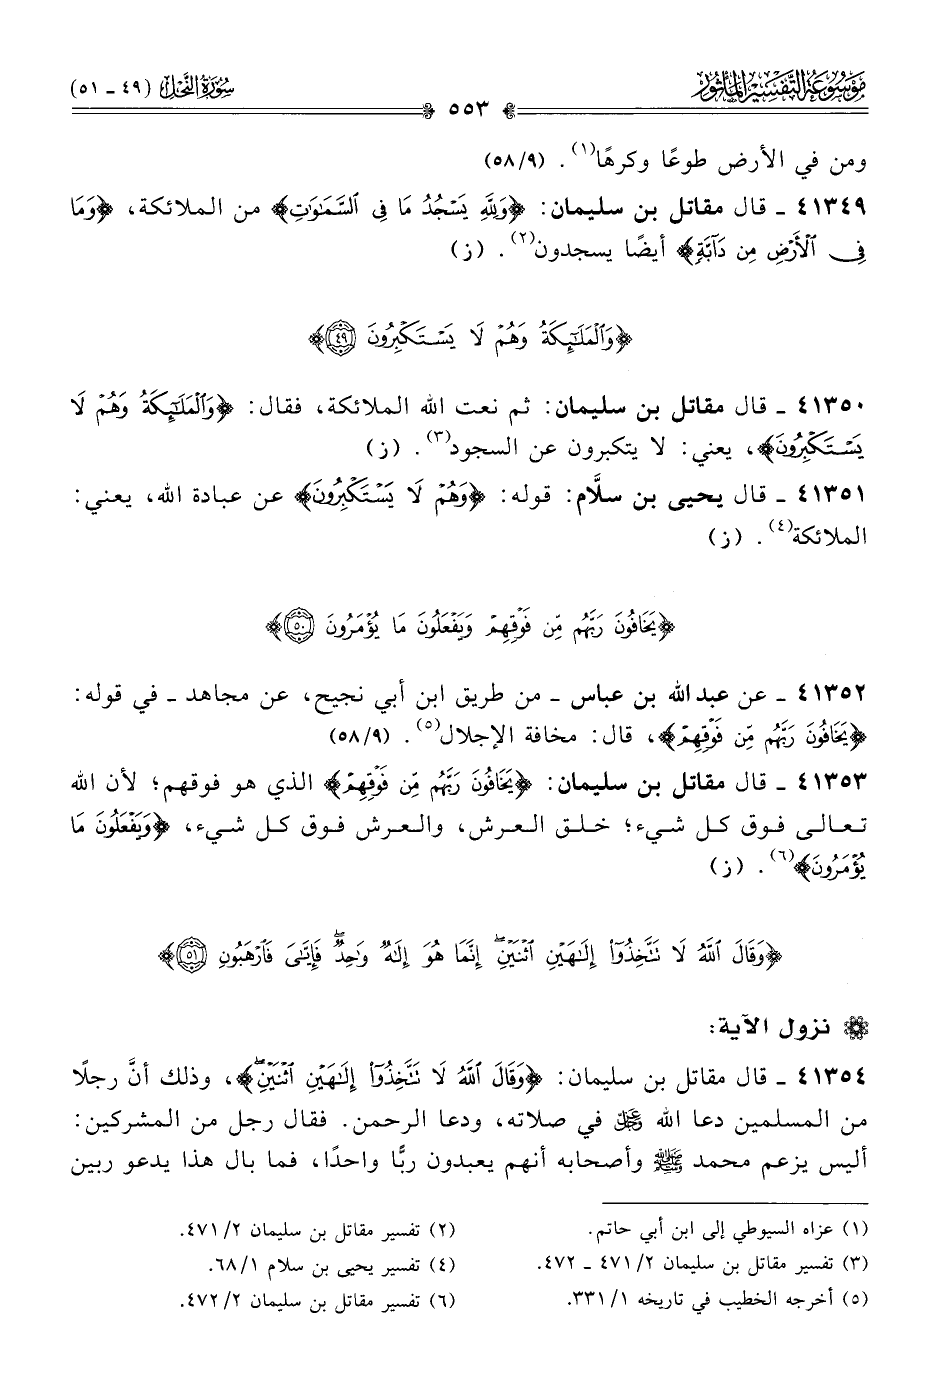 موسوعة التفسير المأثور
سورة النحل (٤٩ - ٥١)
٥٥٣
ومن في الأرض طوعًا وكرهًا(١). (٥٨/٩)
٤١٣٤٩ - قال مقاتل بن سليمان: ﴿وَلِلَّهِ يَسْجُدُ مَا فِي ٱلسَّمَٰوَٰتِ﴾ من الملائكة، ﴿وَمَا
فِي ٱلْأَرْضِ مِن دَآبَّةٍ﴾ أيضًا يسجدون(٢). (ز)
﴿وَٱلْمَلَٰٓئِكَةُ وَهُمْ لَا يَسْتَكْبِرُونَ ٤٩﴾
٤١٣٥٠ - قال مقاتل بن سليمان: ثم نعت الله الملائكة، فقال: ﴿وَٱلْمَلَٰٓئِكَةُ وَهُمْ لَا
يَسْتَكْبِرُونَ﴾، يعني: لا يتكبرون عن السجود(٣). (ز)
٤١٣٥١ - قال يحيى بن سلَّام: قوله: ﴿وَهُمْ لَا يَسْتَكْبِرُونَ﴾ عن عبادة الله، يعني:
الملائكة(٤). (ز)
﴿يَخَافُونَ رَبَّهُم مِّن فَوْقِهِمْ وَيَفْعَلُونَ مَا يُؤْمَرُونَ ٥٠﴾
٤١٣٥٢ - عن عبد الله بن عباس - من طريق ابن أبي نجيح، عن مجاهد - في قوله:
﴿يَخَافُونَ رَبَّهُم مِّن فَوْقِهِمْ﴾، قال: مخافة الإجلال(٥). (٥٨/٩)
٤١٣٥٣ - قال مقاتل بن سليمان: ﴿يَخَافُونَ رَبَّهُم مِّن فَوْقِهِمْ﴾ الذي هو فوقهم؛ لأن الله
تعالى فوق كل شيء؛ خلق العرش، والعرش فوق كل شيء، ﴿وَيَفْعَلُونَ مَا
يُؤْمَرُونَ﴾(٦). (ز)
﴿وَقَالَ ٱللَّهُ لَا تَتَّخِذُوٓا۟ إِلَٰهَيْنِ ٱثْنَيْنِ ۖ إِنَّمَا هُوَ إِلَٰهٌ وَٰحِدٌ ۖ فَإِيَّٰىَ فَٱرْهَبُونِ ٥١﴾
نزول الآية:
٤١٣٥٤ - قال مقاتل بن سليمان: ﴿وَقَالَ ٱللَّهُ لَا تَتَّخِذُوٓا۟ إِلَٰهَيْنِ ٱثْنَيْنِ ۖ﴾، وذلك أنَّ رجلًا
من المسلمين دعا الله ﷿ في صلاته، ودعا الرحمن. فقال رجل من المشركين:
أليس يزعم محمد ﷺ وأصحابه أنهم يعبدون ربًّا واحدًا، فما بال هذا يدعو ربين
(١) عزاه السيوطي إلى ابن أبي حاتم.
(٢) تفسير مقاتل بن سليمان ٤٧١/٢.
(٣) تفسير مقاتل بن سليمان ٤٧١/٢ - ٤٧٢.
(٤) تفسير يحيى بن سلام ٦٨/١.
(٥) أخرجه الخطيب في تاريخه ٣٣١/١.
(٦) تفسير مقاتل بن سليمان ٤٧٢/٢.